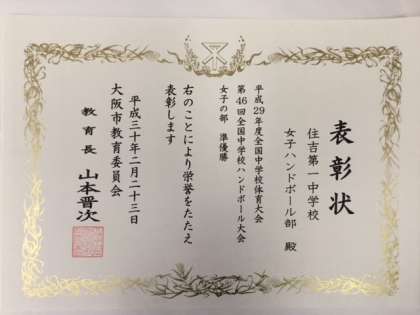 表彰状
住吉第一中学校
女子ハンドボール部 殿
平成29年度全国中学校体育大会
第46回全国中学校ハンドボール大会
女子の部 準優勝
右のことにより栄誉をたたえ
表彰します
平成三十年二月二十三日
大阪市教育委員会
教育長 山本晋次